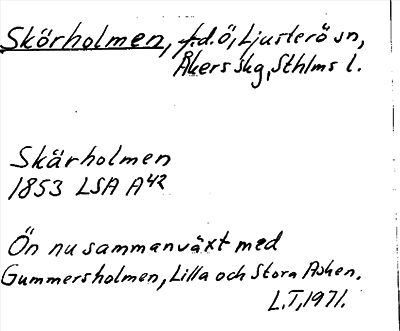 Skörholmen, f.d.ö, Ljusterö sn,
Åkers skg, Sthlms l.
Skärholmen
1853 LSA A42
Ön nu sammanväxt med
Gummersholmen, Lilla och Stora Asken.
L.T, 1971.